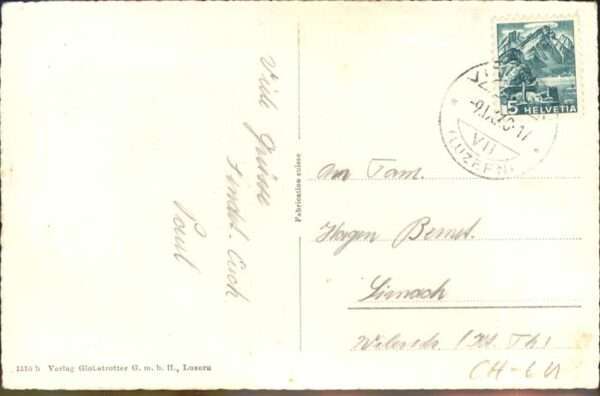 Viele Grüsse
sendet Euch
Paul
Fabrication suisse
5 HELVETIA
VII
(LUZERN)
An Fam.
Hagen Bernet.
Sirnach
Wilerstr. (Kt. Th.)
CH-LU
1110 b Verlag Globetrotter G. m. b. H., Luzern